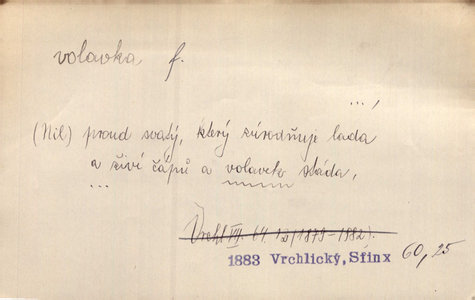 volavka f.
...,
(Nil) proud svatý, který zúrodňuje lada
a živí čápů a volavek stáda,
...
Vrchl VII. 64. 12 (1879–1882).
1883 Vrchlický, Sfinx 60, 25